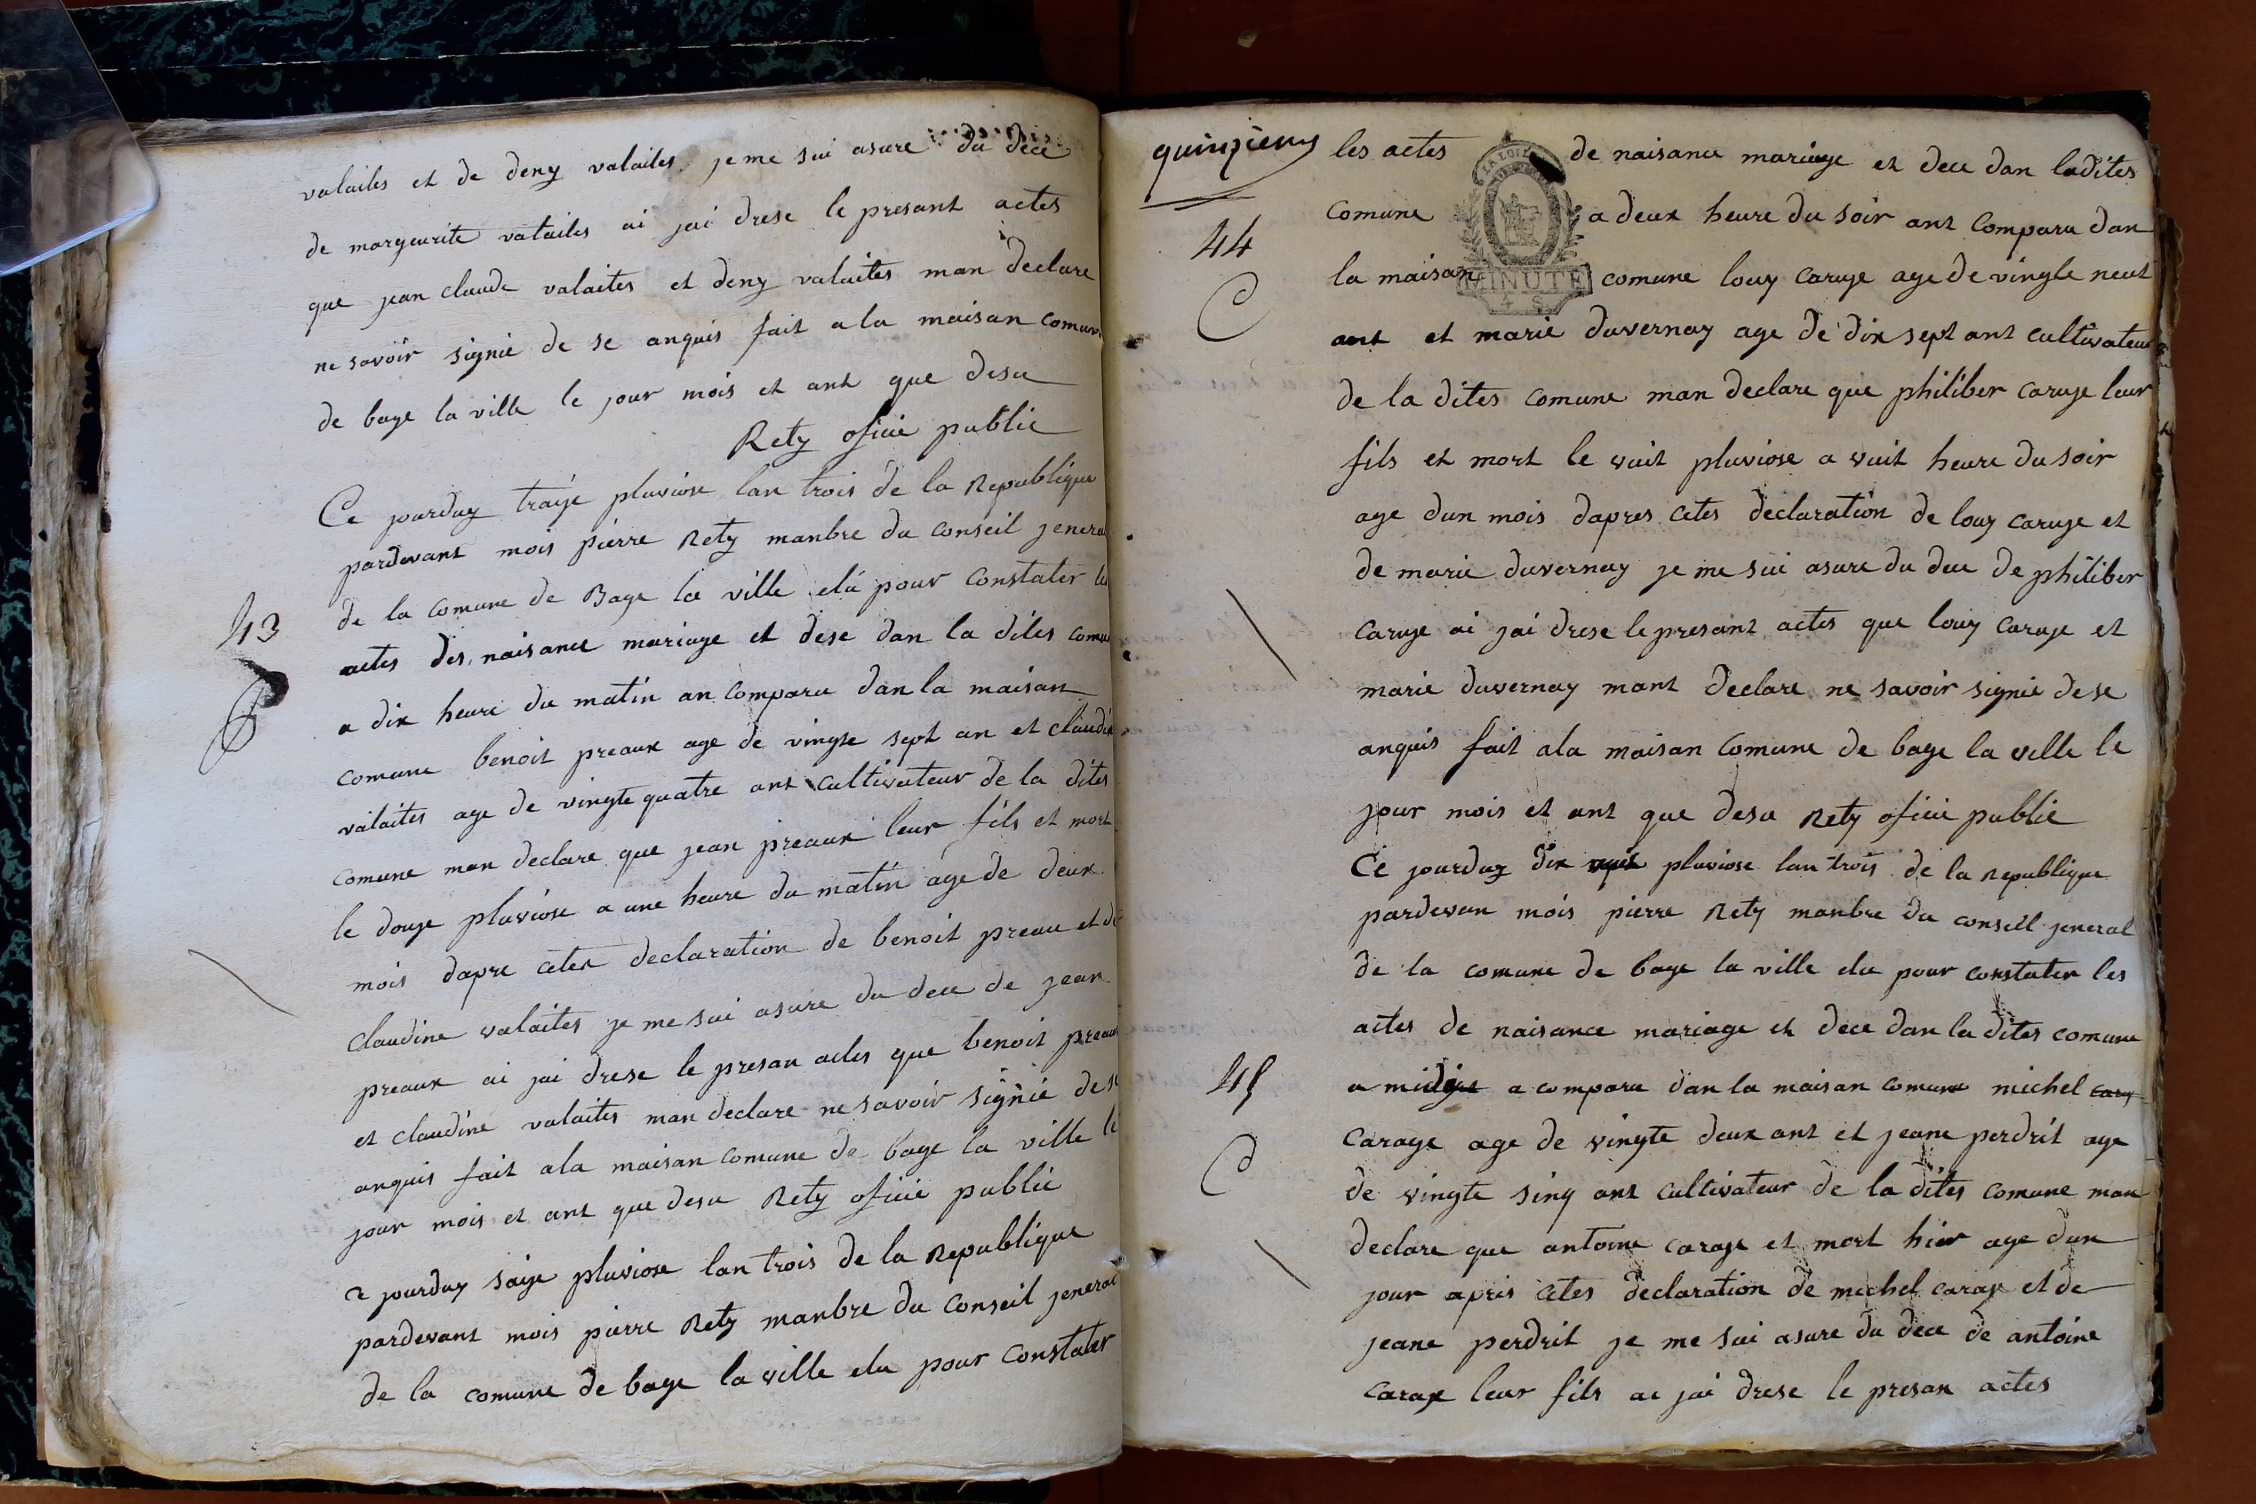 valailes et de deny valailes je me sui asure du dece
de marguerite vatailes ai jai drese le presant actes
que jean claude valaites et deny valaites man declare
ne savoir signié de se anquis fait a la maisan comune
de bage la ville le jour mois et ant que desu
Rety oficie public
Ce jourduy traize pluviose lan trois de la Republique
pardevant mois pierre Rety manbre du conseil jeneral
43
de la comune de Bage la ville elu pour constater les
actes des naisance mariage et dese dan la dites comune
a dix heure du matin an comparu dan la maisan
comune benoit preaux age de vingte sept an et claudine
valaites age de vingte quatre ant cultivateur de la dites
comune man declare que jean preaux leur fils et mort
le douze pluviose a une heure du matin age de deux
mois dapre cetes declaration de benoit preau et de
claudine valaites je me sui asure du dece de jean
preaux ai jai drese le presan actes que benoit preaux
et claudine valaites man declare ne savoir signié de se
anquis fait a la maisan comune de bage la ville le
jour mois et ant que desu Rety oficie public
Ce jourduy saize pluviose lan trois de la Republique
pardevant mois pierre Rety manbre du conseil jeneral
de la comune de bage la ville elu pour constater
quinzieme
les actes de naisance mariage et dece dan la dites
LA LOI
44
comune a deux heure du soir ant comparu dan
la maisan comune louy caruge age de vingte neuf
MINUTE
4 S
ant et marie duvernay age de dix sept ant cultivateur
de la dites comune man declare que philiber caruge leur
fils et mort le vuit pluviose a vuit heure du soir
age dun mois dapres cetes declaration de louy caruge et
de marie duvernay je me sui asure du dece de philiber
caruge ai jai drese le presant actes que louy caruge et
marie duvernay mant declare ne savoir signie de se
anquis fait a la maisan comune de bage la ville le
jour mois et ant que desu Rety oficie public
Ce jourduy dix vuit pluviose lan trois de la Republique
pardevan mois pierre Rety manbre du conseil jeneral
de la comune de bage la ville elu pour constater les
actes de naisance mariage et dece dan la dites comune
45
a midi a comparu dan la maisan comune michel cary
carage age de vingte deux ant et jeane perdrit age
de vingte sinq ant cultivateur de la dites comune man
declare que antoine carage et mort hier age dun
jour apris cetes declaration de michel carage et de
jeane perdrit je me sui asure du dece de antoine
carage leur fils ai jai drese le presan actes